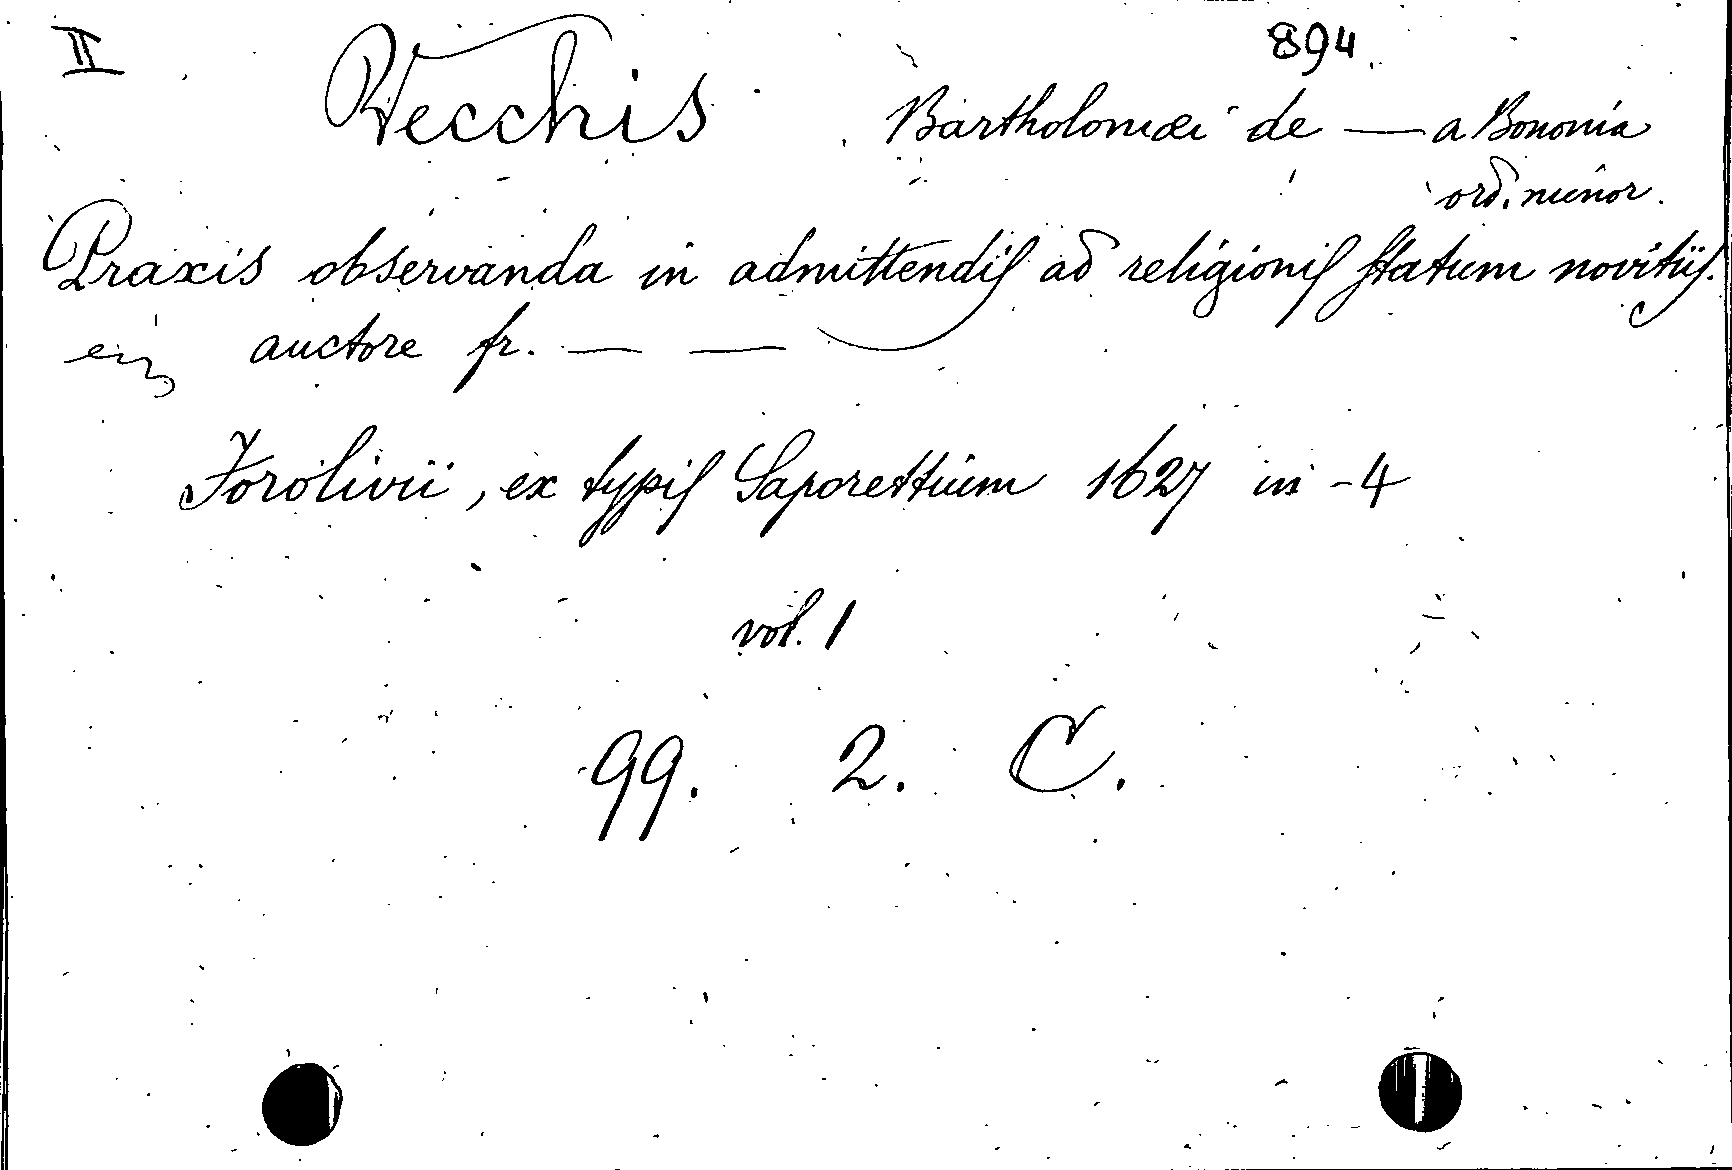 II 894.
Vecchis Bartholomæi de — a Bononia
ord. minor.
Praxis observanda in admittendis ad religionis statum novitiis.
auctore fr. — —
Forolivii, ex typis Saporettium 1627 in-4
vol. 1
99. 2. C.